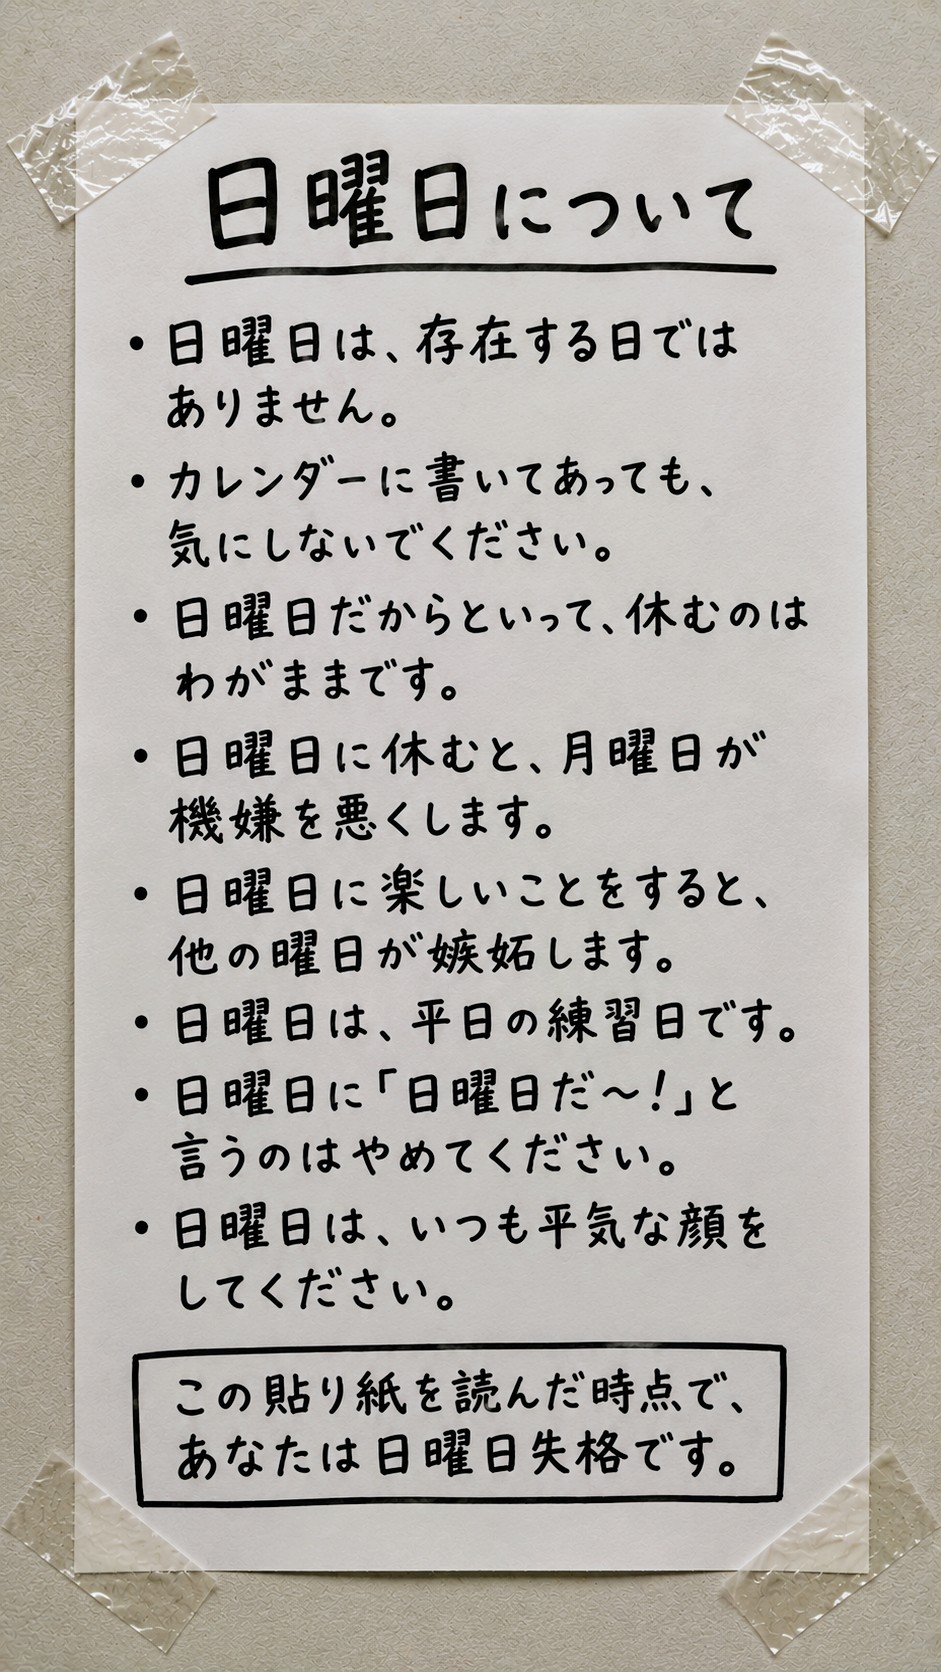 日曜日について
・日曜日は、存在する日では
ありません。
・カレンダーに書いてあっても、
気にしないでください。
・日曜日だからといって、休むのは
わがままです。
・日曜日に休むと、月曜日が
機嫌を悪くします。
・日曜日に楽しいことをすると、
他の曜日が嫉妬します。
・日曜日は、平日の練習日です。
・日曜日に「日曜日だ〜!」と
言うのはやめてください。
・日曜日は、いつも平気な顔を
してください。
この貼り紙を読んだ時点で、
あなたは日曜日失格です。